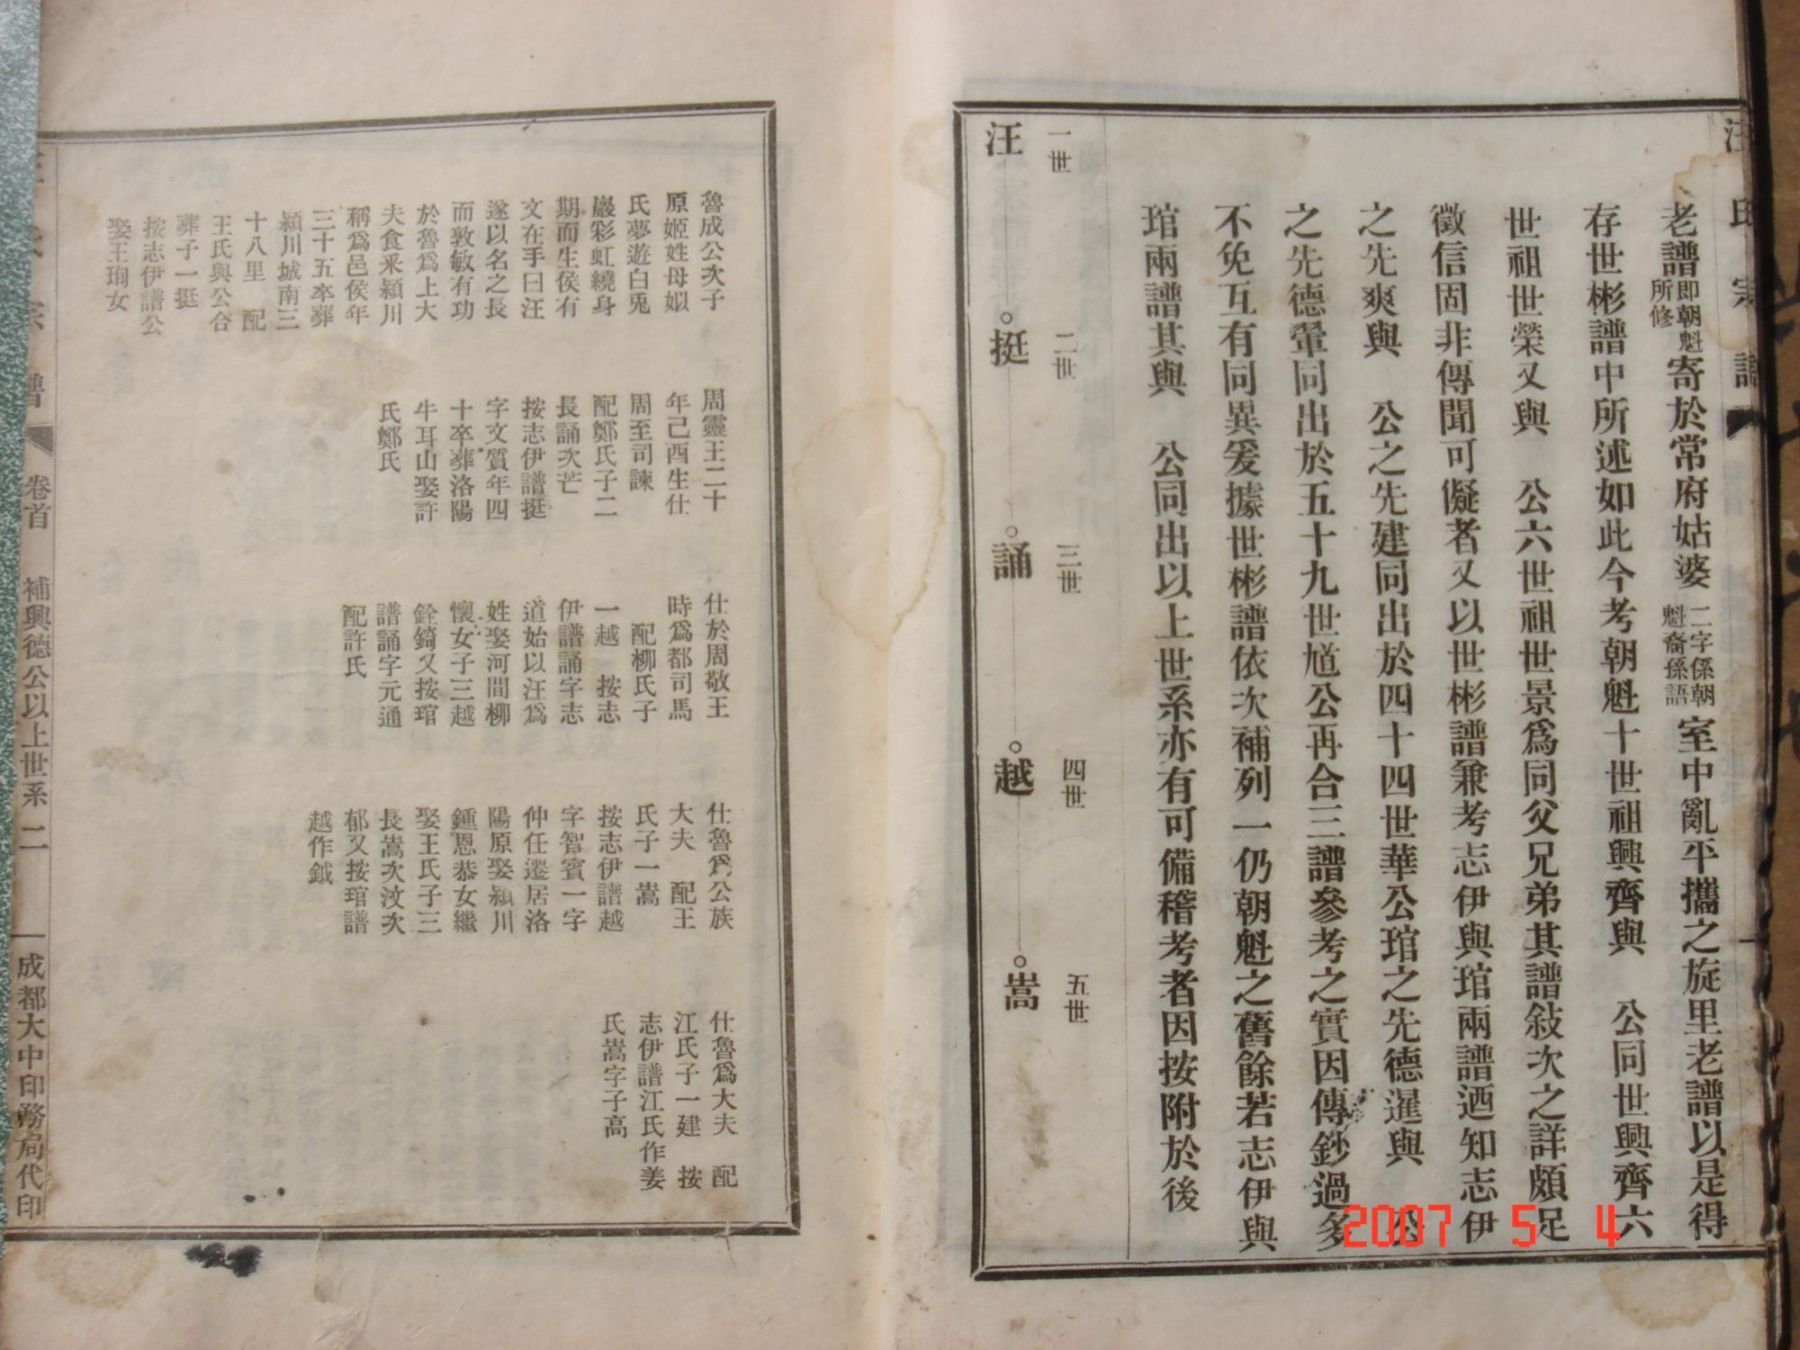 老譜即朝魁所修寄於常府姑婆二字係朝魁裔孫語室中亂平攜之旋里老譜以是得
存世彬譜中所述如此今考朝魁十世祖興齊與 公同世興齊六
世祖世榮又與 公六世祖世景爲同父兄弟其譜敍次之詳頗足
徵信固非傳聞可儗者又以世彬譜兼考志伊與琯兩譜迺知志伊
之先爽與 公之先建同出於四十四世華公琯之先德暹與 公
之先德鞏同出於五十九世馗公再合三譜參考之實因傳鈔過多
不免互有同異爰據世彬譜依次補列一仍朝魁之舊餘若志伊與
琯兩譜其與 公同出以上世系亦有可備稽考者因按附於後
一世
二世
三世
四世
五世
汪
挺
誦
越
嵩
魯成公次子
原姬姓母姒
氏夢遊白兎
巖彩虹繞身
期而生侯有
文在手曰汪
遂以名之長
而敦敏有功
於魯爲上大
夫食采潁川
稱爲邑侯年
三十五卒葬
潁川城南三
十八里 配
王氏與公合
葬子一挺
按志伊譜公
娶王珣女
周靈王二十
年己酉生仕
周至司諫
配鄭氏子二
長誦次芒
按志伊譜挺
字文質年四
十卒葬洛陽
牛耳山娶許
氏鄭氏
仕於周敬王
時爲都司馬
配柳氏子
一越 按志
伊譜誦字志
道始以汪爲
姓娶河間柳
懷女子三越
銓錡又按琯
譜誦字元通
配許氏
仕魯爲公族
大夫 配王
氏子一嵩
按志伊譜越
字智賓一字
仲任遷居洛
陽原娶潁川
鍾恩恭女繼
娶王氏子三
長嵩次汶次
郁又按琯譜
越作鉞
仕魯爲大夫 配
江氏子一建 按
志伊譜江氏作姜
氏嵩字子高
譜 卷首 補興德公以上世系 二 成都大中印務局代印
2007 5 4